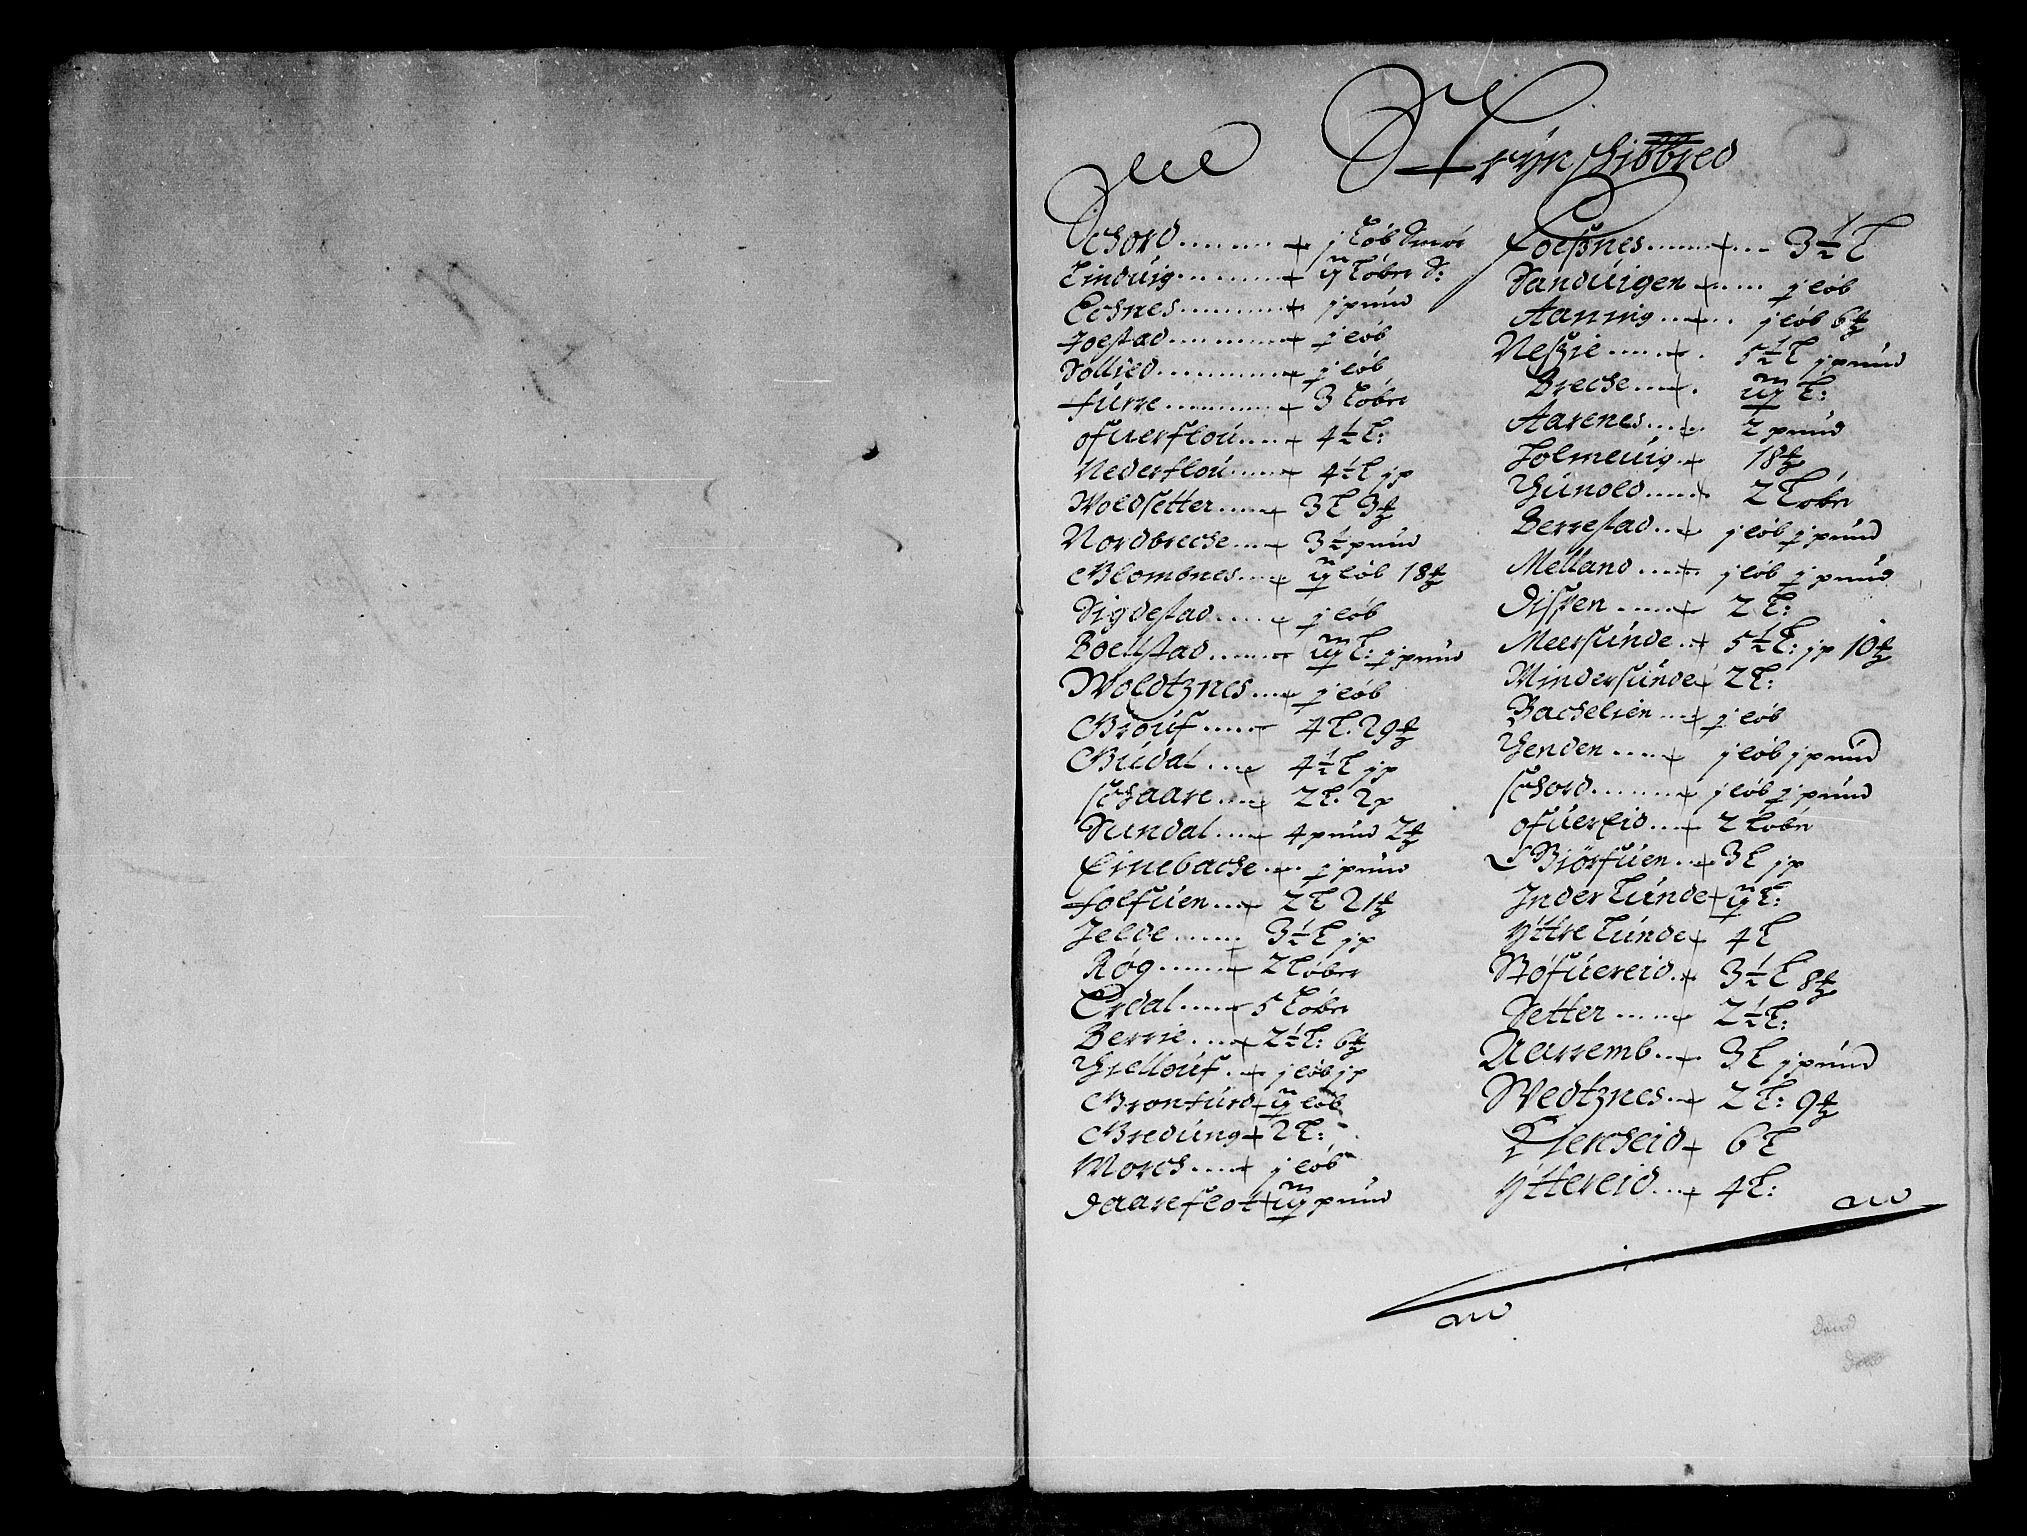 Stryn Skibbred
Schord ........ + j løb Smør
Lindvig ........ + ij løber S:
Echnes ........ + j pund
Joestad ........ + j løb
Sollied ........ + j løb
Furre ........ + 3 løber
Ofuerflou ..... + 4½ L:
Nederflou ...... + 4½ L j p
Woldsetter ..... + 3 L 3 ℔
Nordbreche .... + 3½ pund
Blombnes .... + ij løb 18 ℔
Sigdestad ..... + j løb
Boelstad ....... iij L: j pund
Woldtznes .... + j løb
Grouf ..... + 4 L. 29 ℔
Budal .... + 4½ L j p
Schaare .... + 2 L. 2 p
Sundal .... + 4 pund 2 ℔
Einebache .. + j pund
Folfuen ... + 2 L 21 ℔
Jelde ....... 3½ L j p
Røg ...... + 2 løber
Erdal .... + 5 løber
Berrie .... + 2½ L: 6 ℔
Giellouf .. + j løb j p
Bronfurd + ij løb
Bredung + 2 L:
Morch .... + j løb
Daareflot + iij pund
Foeßnes ...... + ... 3½ L
Sandvigen + ..... j løb
Aaning ... + .. j løb 6 ℔
Neßie ...... + . 5½ L j pund
Breche ... + . iij L:
Aarenes ... + . 2 pund
Holmevig + 18 ℔
Gunold ..... + 2 løber
Berrestad ... + j løb j pund
Melland .... + . j løb j pund
Dispen ...... + 2 L:
Meersunde .. + 5½ L: j p 10 ℔
Mindersunde + 2 L:
Bachelien ... + j løb
Henden .... + j løb j pund
Schord ........ + j løb j pund
Ofuereid ... + 2 løber
Biørfuen .. + 3 L j p
Inderlunde + ij L:
Yttre Lunde + 4 L
Støfuereid .. + 3½ L 8 ℔
Setter ..... + 2½ L:
Aarremb ... + 3 L j pund
Wedtznes ... + 2 L: 9 ℔
Kiercheid + 6 L
Yttereid ... + 4 L: